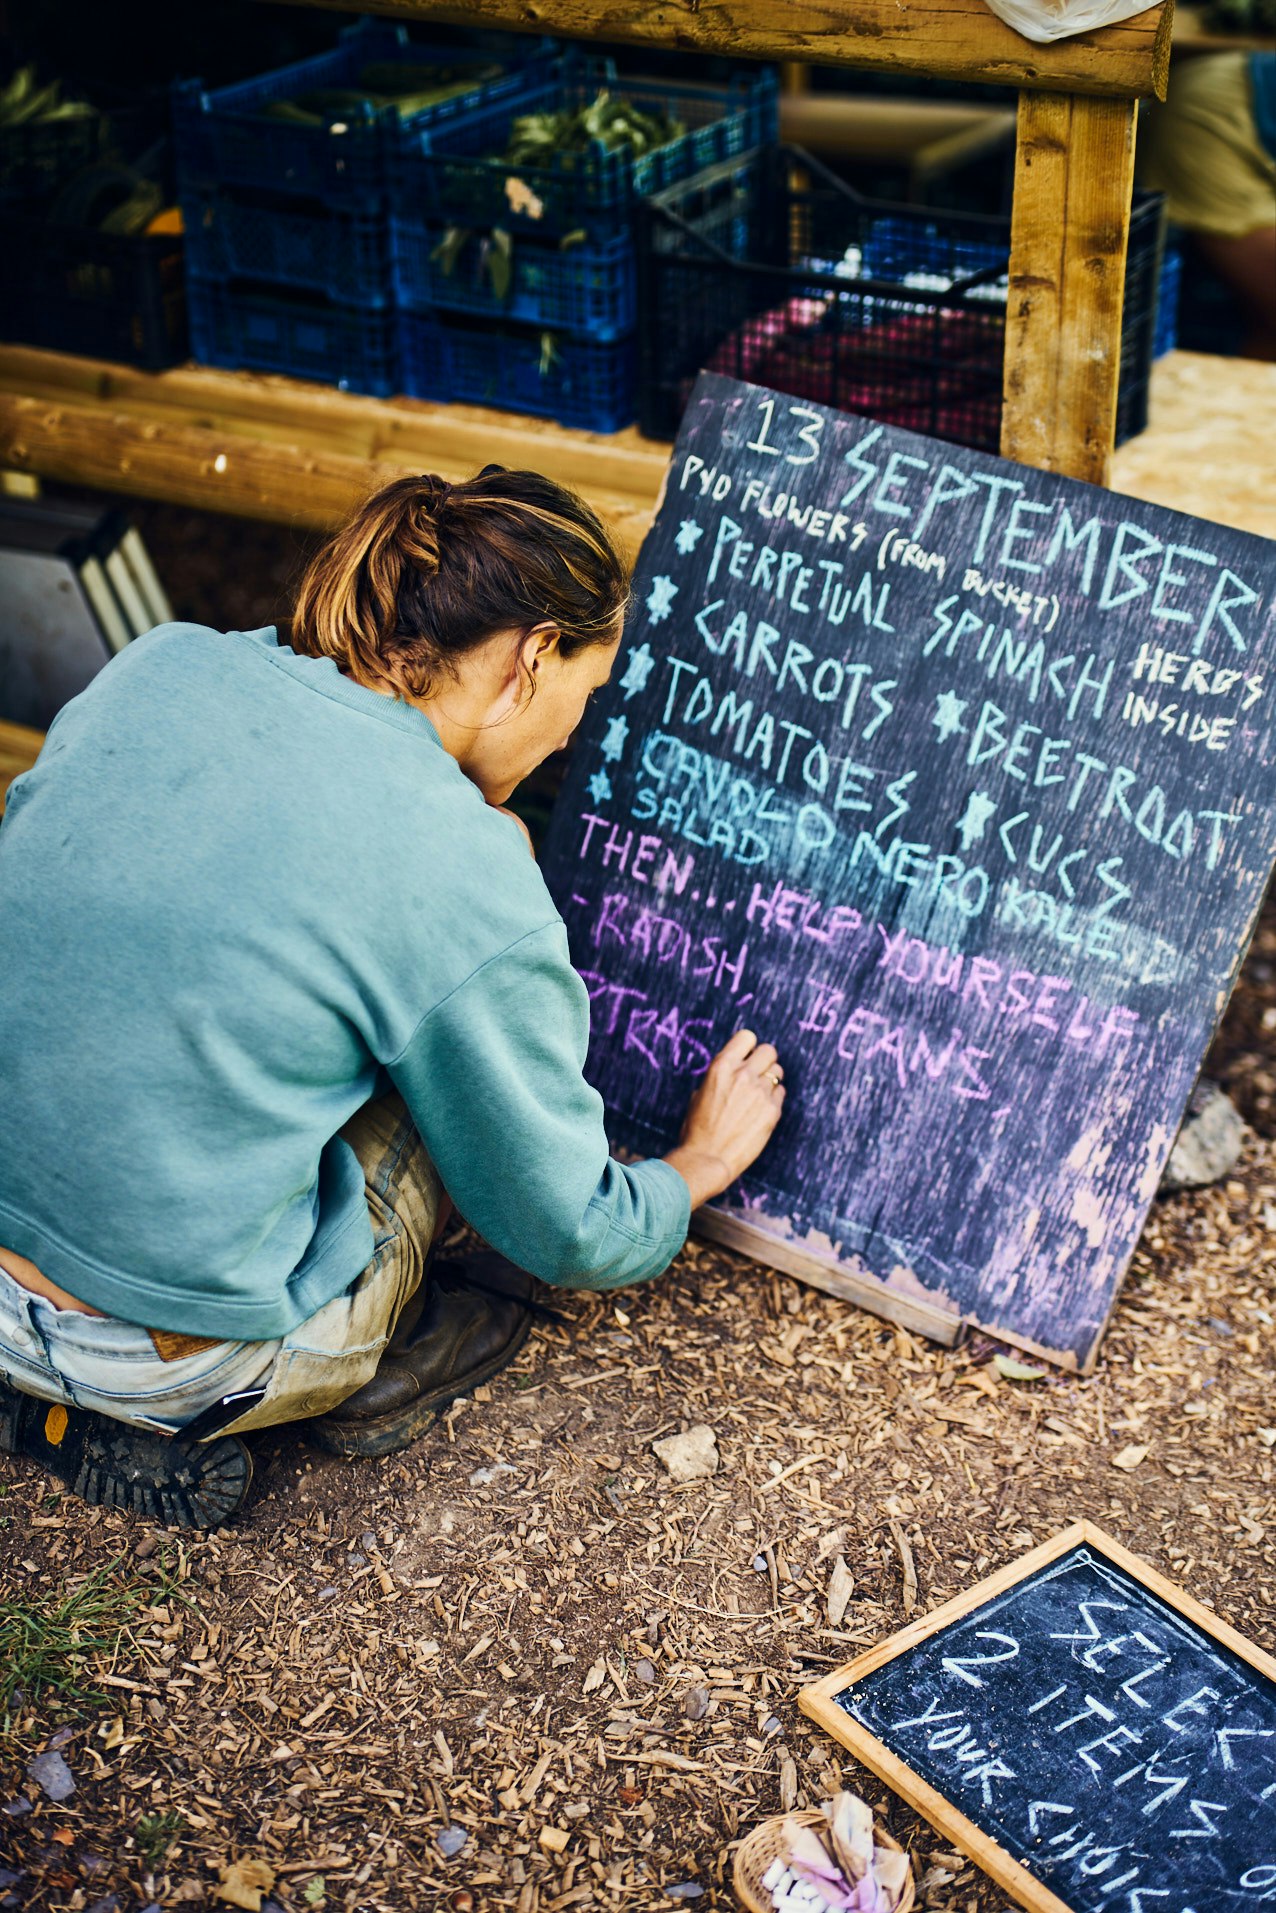 13 SEPTEMBER
PYO FLOWERS (FROM BUCKET)
PERPETUAL SPINACH
HERBS
INSIDE
CARROTS
BEETROOT
TOMATOES
CUCS
CAVOLO NERO KALE
SALAD
THEN... HELP YOURSELF
- RADISH, BEANS,
XTRAS
SELECT
2 ITEMS OF
YOUR CHOICE